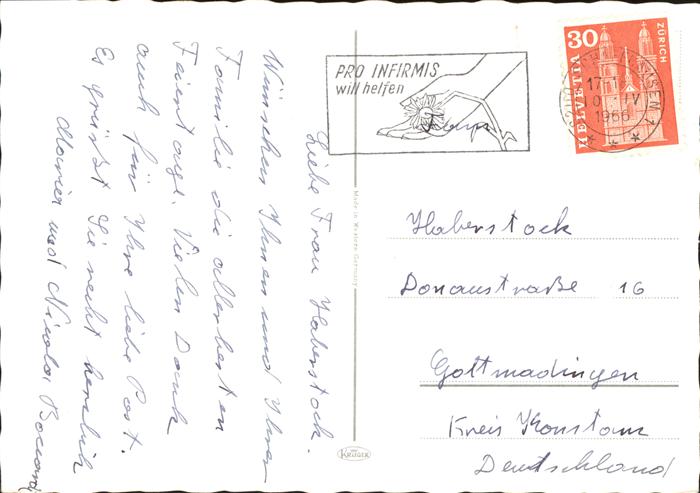 Liebe Frau Haberstock.
Wünschen Ihnen und Ihrer
Familie die allerbesten
Feiertage. Vielen Dank
auch für Ihre liebe Post.
Es grüsst Sie recht herzlich
und Nicola
PRO INFIRMIS
will helfen
30
HELVETIA
ZÜRICH
1966
Made in Western Germany
KRÜGER
Haberstock
Donaustraße 16
Gottmadingen
Kreis Konstanz
Deutschland